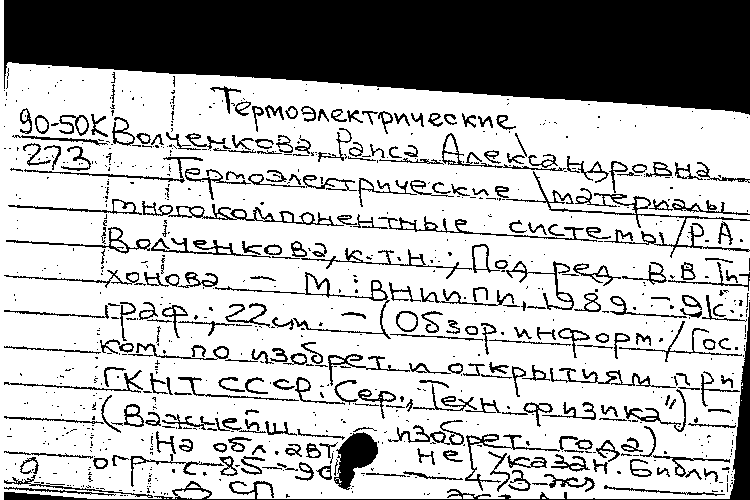 Термоэлектрические
90-50К Волченкова, Раиса Александровна
273 Термоэлектрические материалы
многокомпонентные системы / Р.А.
Волченкова, к.т.н.; Под ред. В.В. Ти-
хонова - М.: ВНИИПИ, 1989. - 91с.:
граф.; 22см. - (Обзор. информ. / Гос.
ком. по изобрет. и открытиям при
ГКНТ СССР. Сер., Техн. физика"). -
(Важнейш. изобрет. года).
На обл. авт не указан. Библи-
9 огр. с. 85-90 - 473 экз.